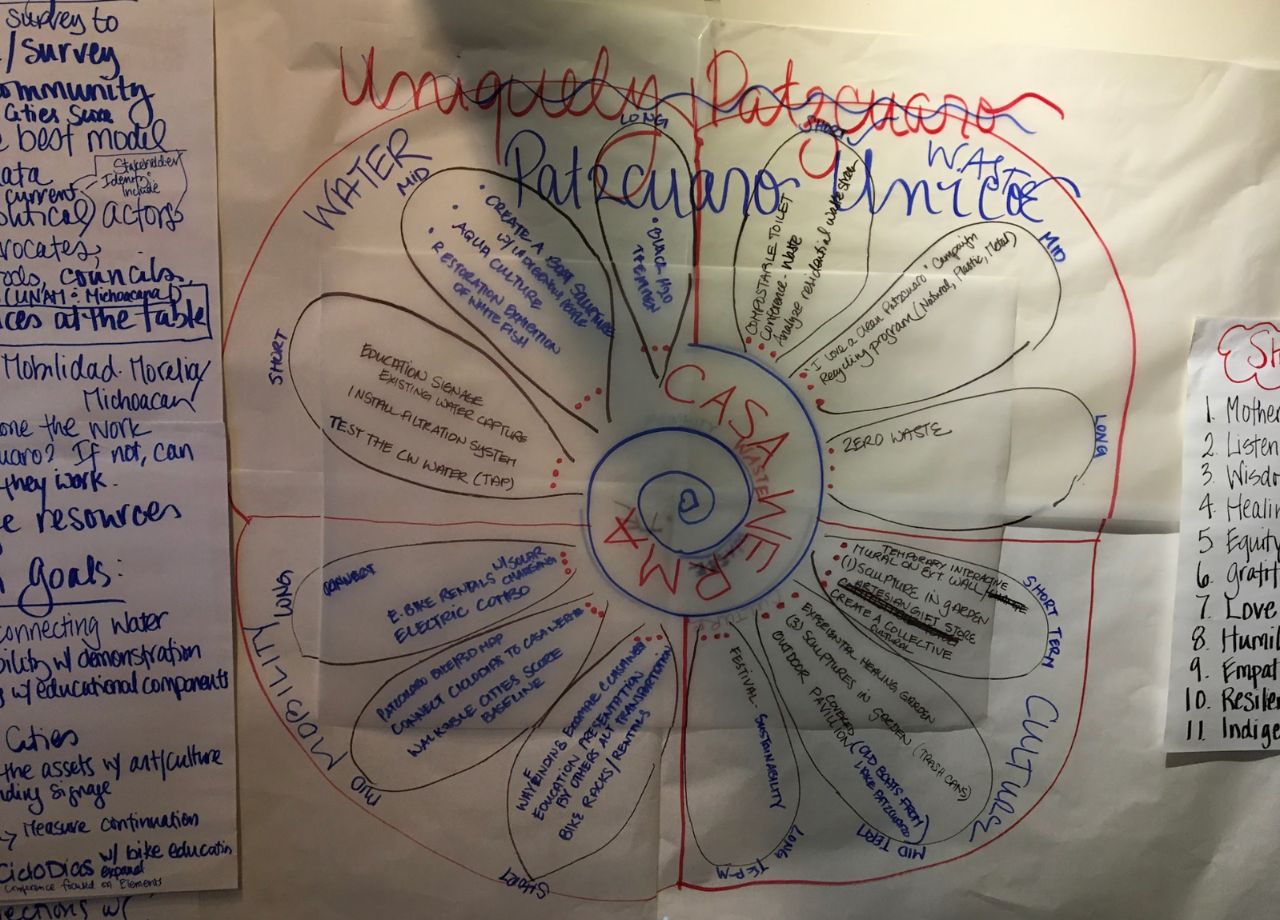 survey to
/survey
ommunity
Cities Score
best model
ata
Stakeholder
Identify
include
current
political/ actors
vocates,
ools, councils,
(UNAM - Michoacana)
ces at the table
Mobilidad. Morelia/
Michoacan
one the work
uaro? If not, can
they work.
e resources
Goals:
connecting water
bility w/ demonstration
w/ educational components
Cities
the assets w/ art/culture
nding signage
→ Measure continuation
CicloDias w/ bike education
expand
Conference focused on Elements
ections w/
Uniquely Patzcuaro
Patzcuaro Unico
WATER
MID
• CREATE A BOAT SCULPTURE
W/ INDIGENOUS PEOPLE
• AQUA CULTURE
• RESTORATION EXHIBITION
OF WHITE FISH
LONG
• BLACK H2O
SHORT
EDUCATION SIGNAGE
EXISTING WATER CAPTURE
INSTALL FILTRATION SYSTEM
TEST THE CW WATER (TAP)
WASTE
SHORT
COMPOSTABLE TOILET
Conference - Waste
Analyze residential waste
MID
"I love a clean Patzcuaro" Campaign
Recycling program (Natural, Plastic, Metal)
LONG
ZERO WASTE
CASA WERMA
MOBILITY
LONG
CONNECT
E-BIKE RENTALS W/ SOLAR
CHARGING
ELECTRIC COMBO
MID
PATZCUARO BIKE/PED MAP
CONNECT CICLODIAS TO CASA WERMA
WALKABLE CITIES SCORE
BASELINE
SHORT
WAYFINDING
EDUCATION PRESENTATION
BY OTHERS ALT TRANSPORTATION
BIKE RACKS/RENTALS
CULTURE
SHORT TERM
TEMPORARY INTERACTIVE
MURAL ON EXT WALL/
(1) SCULPTURE IN GARDEN
ARTESIAN GIFT STORE
CREATE A COLLECTIVE
CULTURAL
MID TERM
EXPERIENTIAL HEALING GARDEN
(3) SCULPTURES IN GARDEN (TRASH CANS)
OUTDOOR COVERED
PAVILLION (OLD BOATS FROM
LAKE PATZCUARO)
LONG TERM
FESTIVAL - SUSTAINABILITY
SH
1. Mother
2. Listen
3. Wisdo
4. Healin
5. Equity
6. gratit
7. Love
8. Humil
9. Empat
10. Resilie
11. Indige